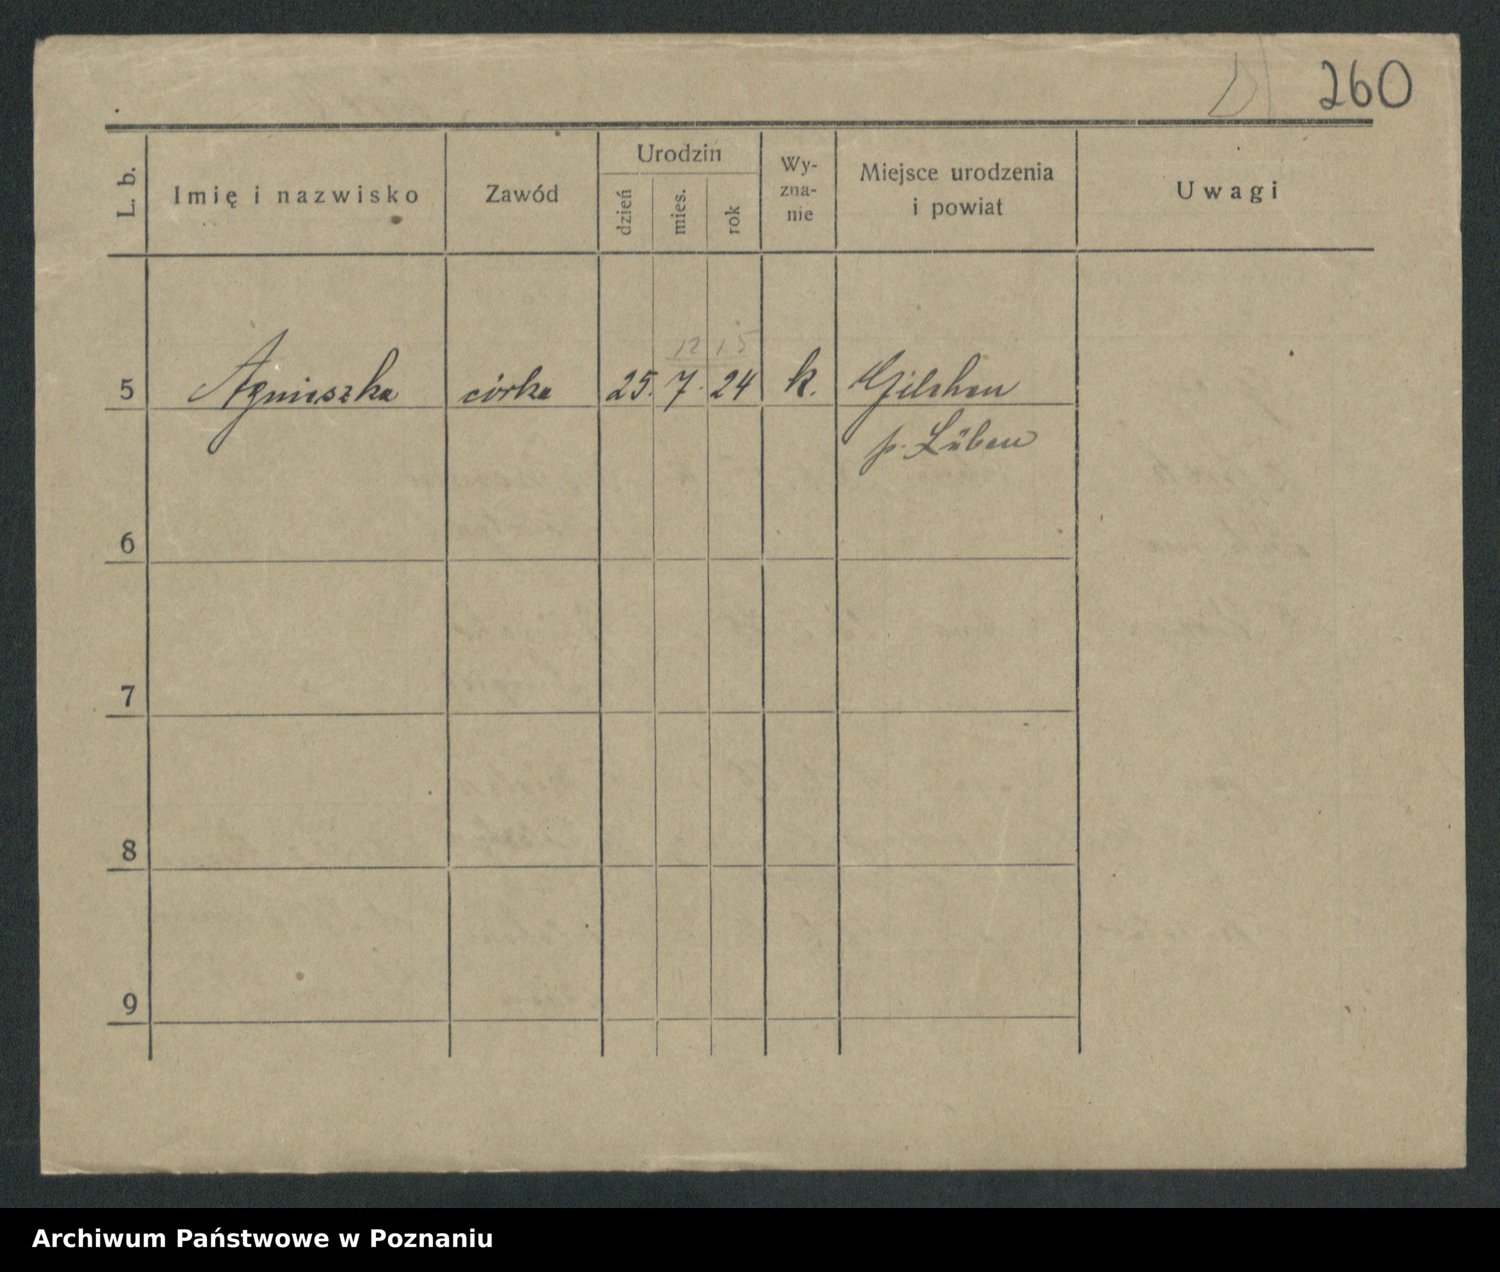 260
L. b.
Imię i nazwisko
Zawód
Urodzin
dzień
mies.
rok
Wy-
zna-
nie
Miejsce urodzenia
i powiat
Uwagi
12 15
5 Agnieszka córka 25. 7. 24 k. Gilchen
p. Lüben
6
7
8
9
Archiwum Państwowe w Poznaniu